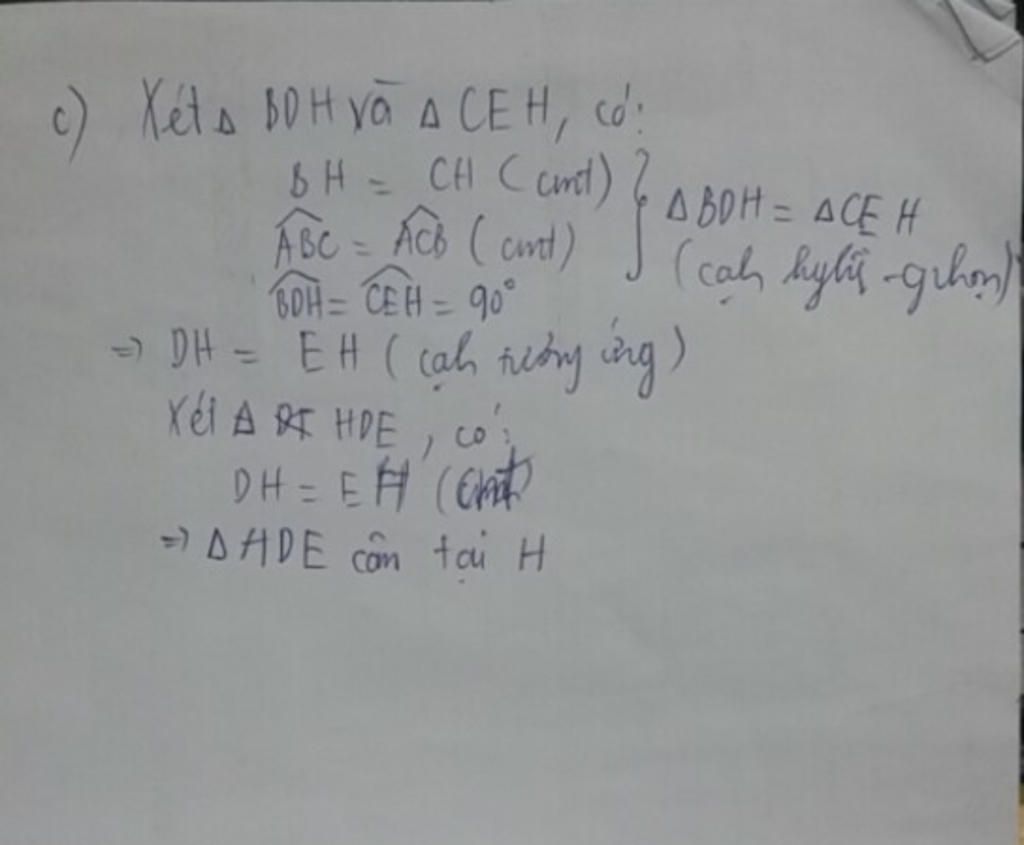 c) Xét Δ BDH và Δ CEH, có:
BH = CH (cmt)
ABC = ACB (cmt)
BDH = CEH = 90°
} ΔBDH = ΔCEH
(cạh hylù -gnhọn)
=> DH = EH (cạh tương ứng)
Xét Δ HDE, có:
DH = EH (cmt)
=> ΔHDE cân tại H